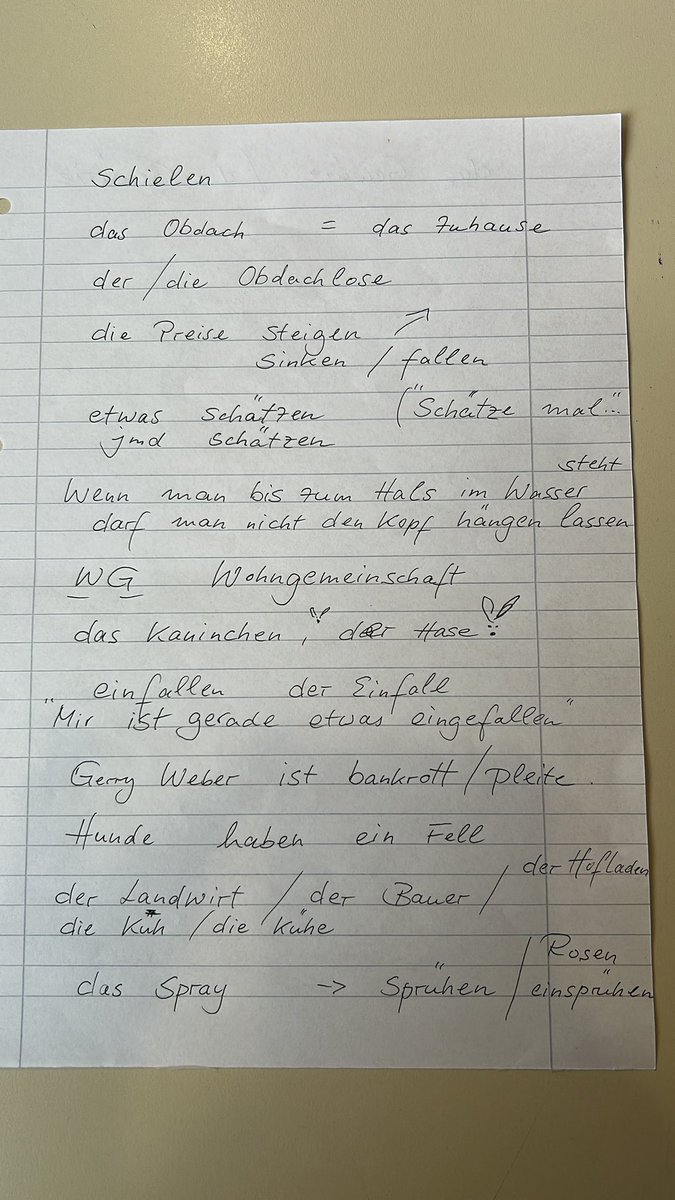 Schielen
das Obdach = das Zuhause
der / die Obdachlose
die Preise steigen ↗
sinken / fallen
etwas schätzen ("Schätze mal..."
jmd schätzen
steht
Wenn man bis zum Hals im Wasser
darf man nicht den Kopf hängen lassen
WG Wohngemeinschaft
das Kaninchen, der Hase
einfallen der Einfall
"Mir ist gerade etwas eingefallen"
Gerry Weber ist bankrott / pleite.
Hunde haben ein Fell
der Hofladen
der Landwirt / der Bauer /
die Kuh / die Kühe
Rosen
das Spray -> Sprühen / einsprühen